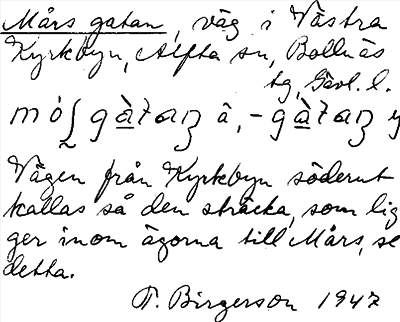 Mårs gatan, väg i Västra
Kyrkbyn, Alfta sn, Bollnäs
tg, Gävl. l.
â,
Vägen från Kyrkbyn söderut
kallas så den sträcka, som lig
ger inom ägorna till Mårs, se
detta.
T. Birgerson 1947